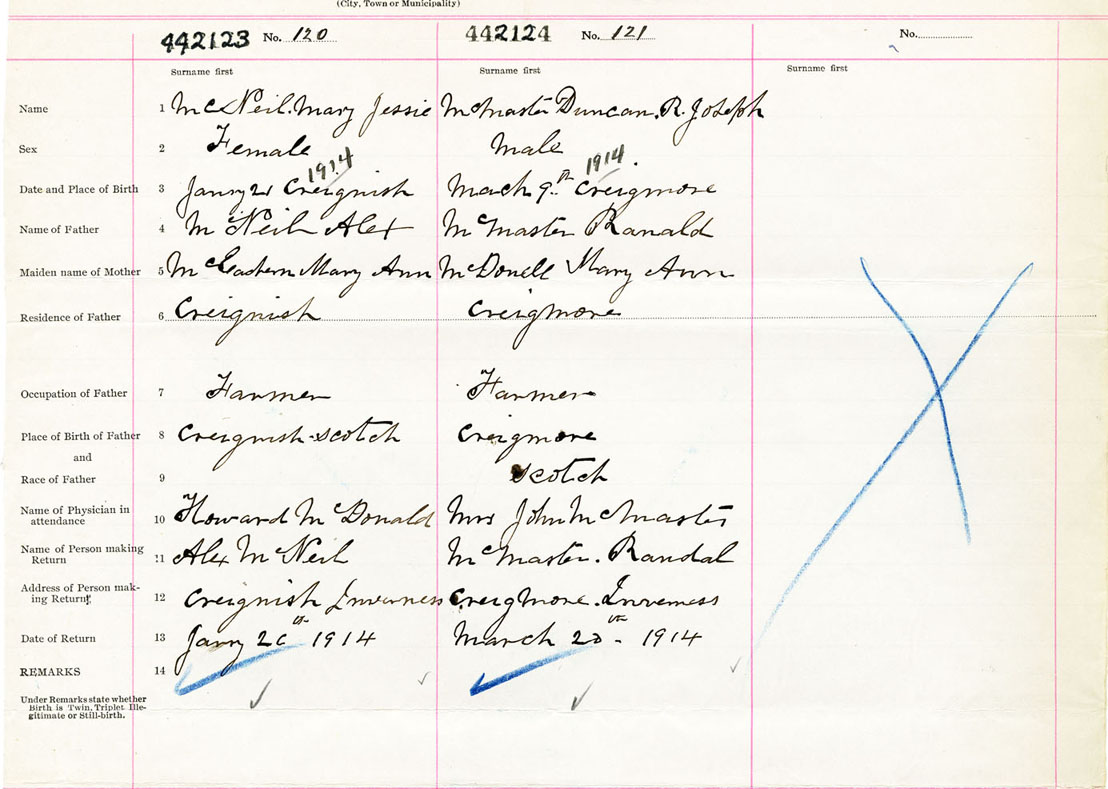 (City, Town or Municipality)
442123 No. 120 442124 No. 121 No.
Surname first Surname first Surname first
Name 1 McNeil. Mary Jessie McMaster Duncan. R. Joseph
Sex 2 Female Male
1914 1914.
Date and Place of Birth 3 Janry Creignish Mach 9th Creigmore
Name of Father 4 McNeil Alex McMaster Ranald
Maiden name of Mother 5 Mary Ann McDonell Mary Ann
Residence of Father 6 Creignish Creigmore
Occupation of Father 7 Farmer Farmer
Place of Birth of Father 8 Creignish-scotch Creigmore
and
Race of Father 9 scotch
Name of Physician in
attendance 10 Howard McDonald Mrs John McMaster
Name of Person making
Return 11 Alex McNeil McMaster. Randal
Address of Person mak-
ing Return 12 Creignish Inverness Creigmore. Inverness
Date of Return 13 Janry 20th 1914 March 20th - 1914
REMARKS 14
Under Remarks state whether
Birth is Twin, Triplet, Ille-
gitimate or Still-birth.